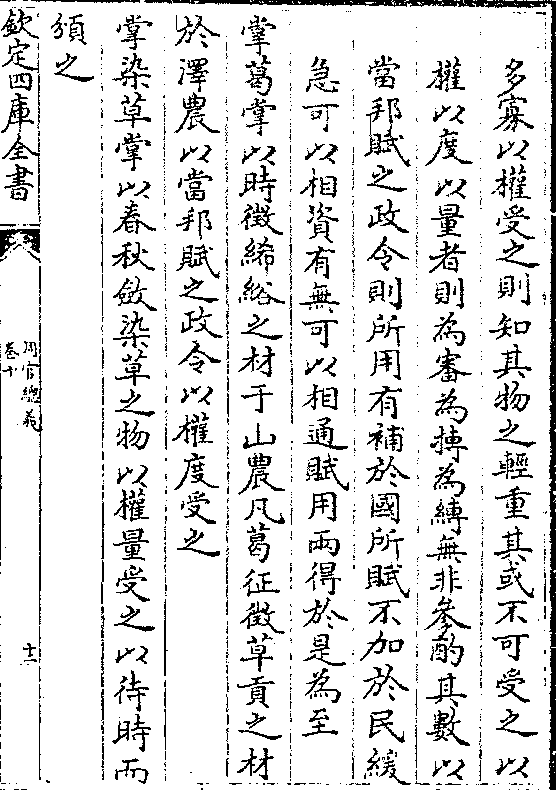 多寡以權受之則知其物之輕重其或不可受之以
權以度以量者則為審為摶為縛無非參酌其數以
當邦賦之政令則所用有補於國所賦不加於民緩
急可以相資有無可以相通賦用兩得於是為至
掌葛掌以時徵絺綌之材于山農凡葛征徵草貢之材
於澤農以當邦賦之政令以權度受之
掌染草掌以春秋斂染草之物以權量受之以待時而
頒之
欽定四庫全書
周官總義
卷十
十二